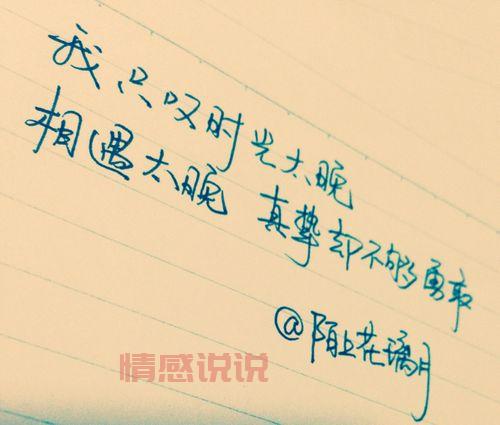 我只叹时光太晚
相遇太晚 真挚却不够勇敢
@陌上花璃月
情感说说